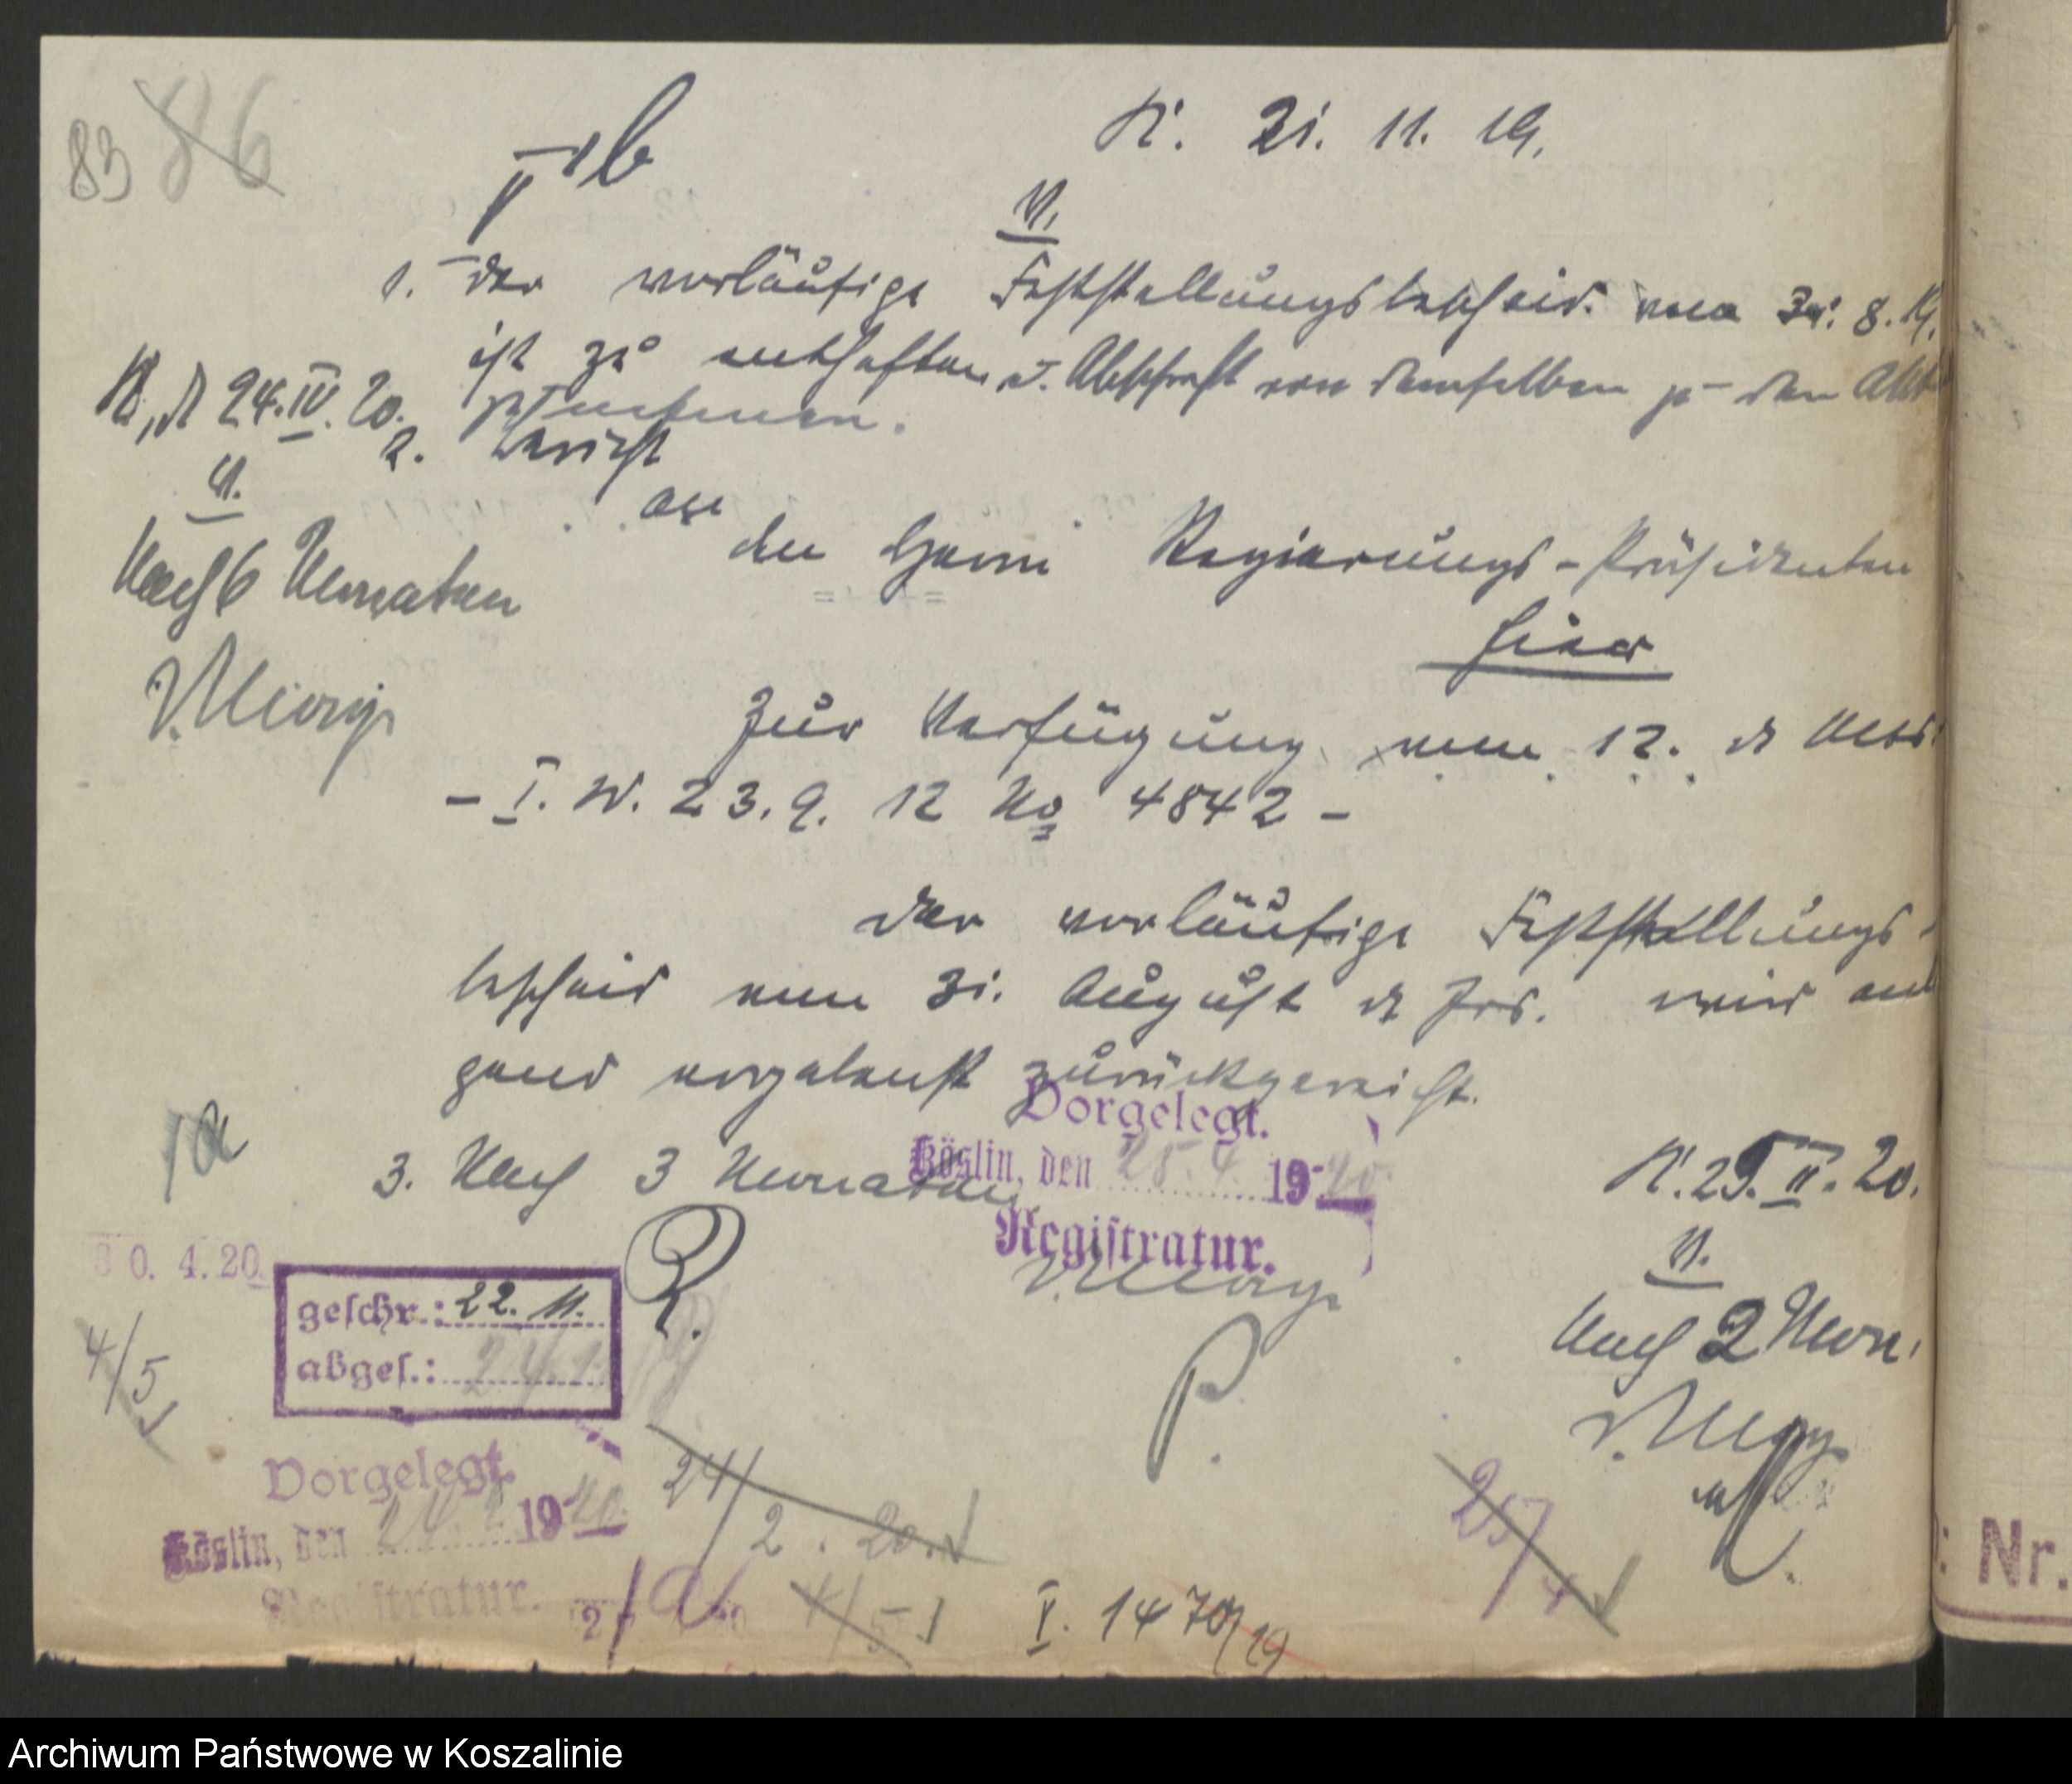 83 86
V b
K. 21. 11. 19.
V.
1. Der vorläufige Feststellungsbescheid vom 31. 8. 19.
ist zu entheften u. Abschrift von demselben zu den Akt
zu nehmen.
K, d 24. IV. 20.
V.
Nach 6 Monaten
2. Bericht
an
den Herrn Regierungs-Präsidenten
hier
Zur Verfügung vom 12. d Mts.
- I. W. 23. 9. 12 No 4842 -
Der vorläufige Feststellungs-
bescheid vom 31. August d Jrs. wird anl
gend ergebenst zurückgereicht.
3. Nach 3 Monaten
Vorgelegt.
Köslin, den 25. 4. 1920
Registratur.
K. 29. II. 20.
V.
Nach 2 Mon.
30. 4. 20.
geschr.: 22. 11.
abges.:
4/5
P.
Vorgelegt.
Köslin, den 24. 2. 1920
Registratur.
24/2. 20.
25/4
4/5
V. 1470/19
: Nr.
Archiwum Państwowe w Koszalinie